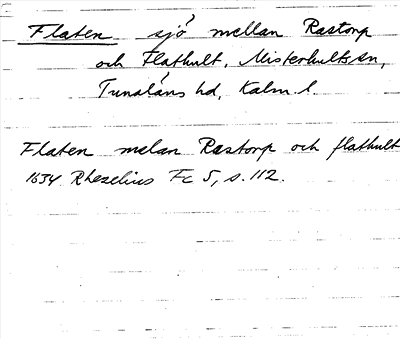 Flaten sjö mellan Rastorp
och Flathult, Misterhults sn,
Tunaläns hd, Kalm. l.
Flaten melan Rastorp och flathult
1634 Rhezelius Fc 5, s. 112.